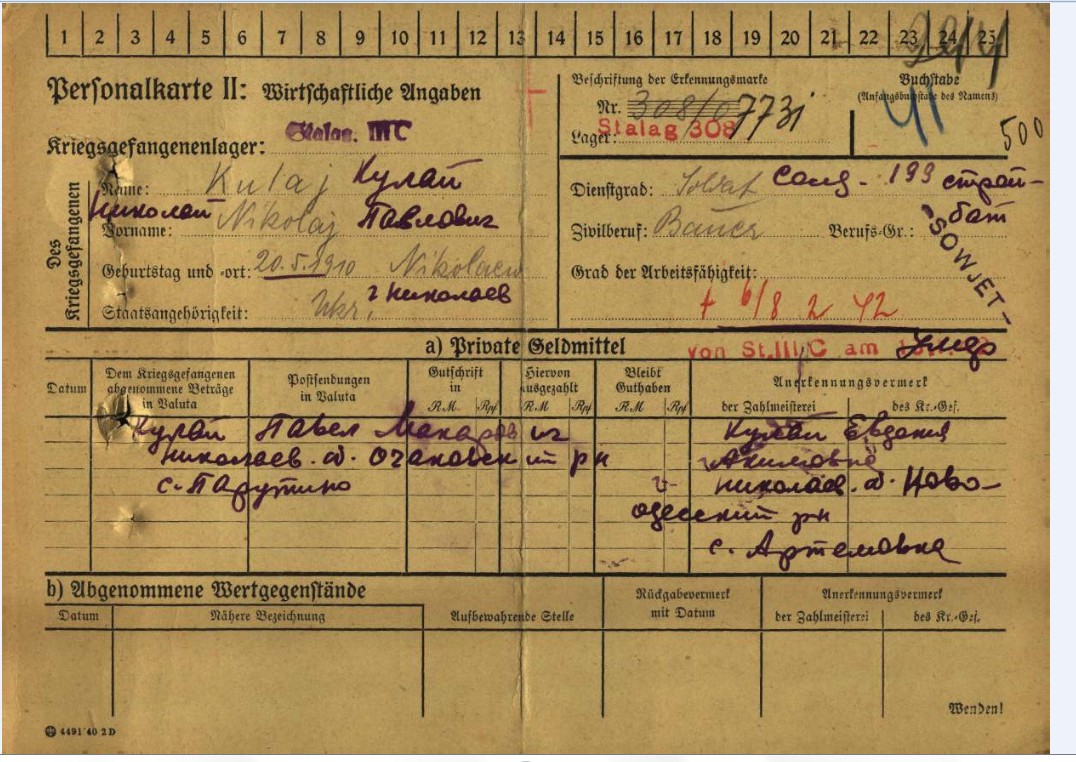 1 2 3 4 5 6 7 8 9 10 11 12 13 14 15 16 17 18 19 20 21 22 23 24 25
Personalkarte II: Wirtschaftliche Angaben
Beschriftung der Erkennungsmarke
Nr. 308/0 7731
Lager: Stalag 308
Buchstabe
(Anfangsbuchstabe des Namens)
500
Stalag. III C
Kriegsgefangenenlager:
Des Kriegsgefangenen
Name: Kulaj Кулай
Николай Nikolaj Павлович
Vorname:
Geburtstag und -ort: 20.5.1910 Nikolaew
г Николаев
Staatsangehörigkeit: Ukr.
Dienstgrad: Soldat Солд. - 199 строй-
бат
Zivilberuf: Bauer Berufs-Gr.:
SOWJET-
Grad der Arbeitsfähigkeit:
+ 6/8 2 42
von St. III C am
a) Private Geldmittel
Datum
Dem Kriegsgefangenen abgenommene Beträge in Valuta
Postsendungen in Valuta
Gutschrift in
RM Rpf
Hiervon ausgezahlt
RM Rpf
Bleibt Guthaben
RM Rpf
Anerkennungsvermerk
der Zahlmeisterei des Kr.-Gef.
Кулай Павел Макарович Кулай Евдокия
Николаев. о. Очаковский рн Акимовне
с. Парутино Николаев. о. Ново-
одесский рн
с. Артемовка
b) Abgenommene Wertgegenstände
Datum
Nähere Bezeichnung
Aufbewahrende Stelle
Rückgabevermerk mit Datum
Anerkennungsvermerk
der Zahlmeisterei des Kr.-Gef.
Wenden!
4491 40 2D